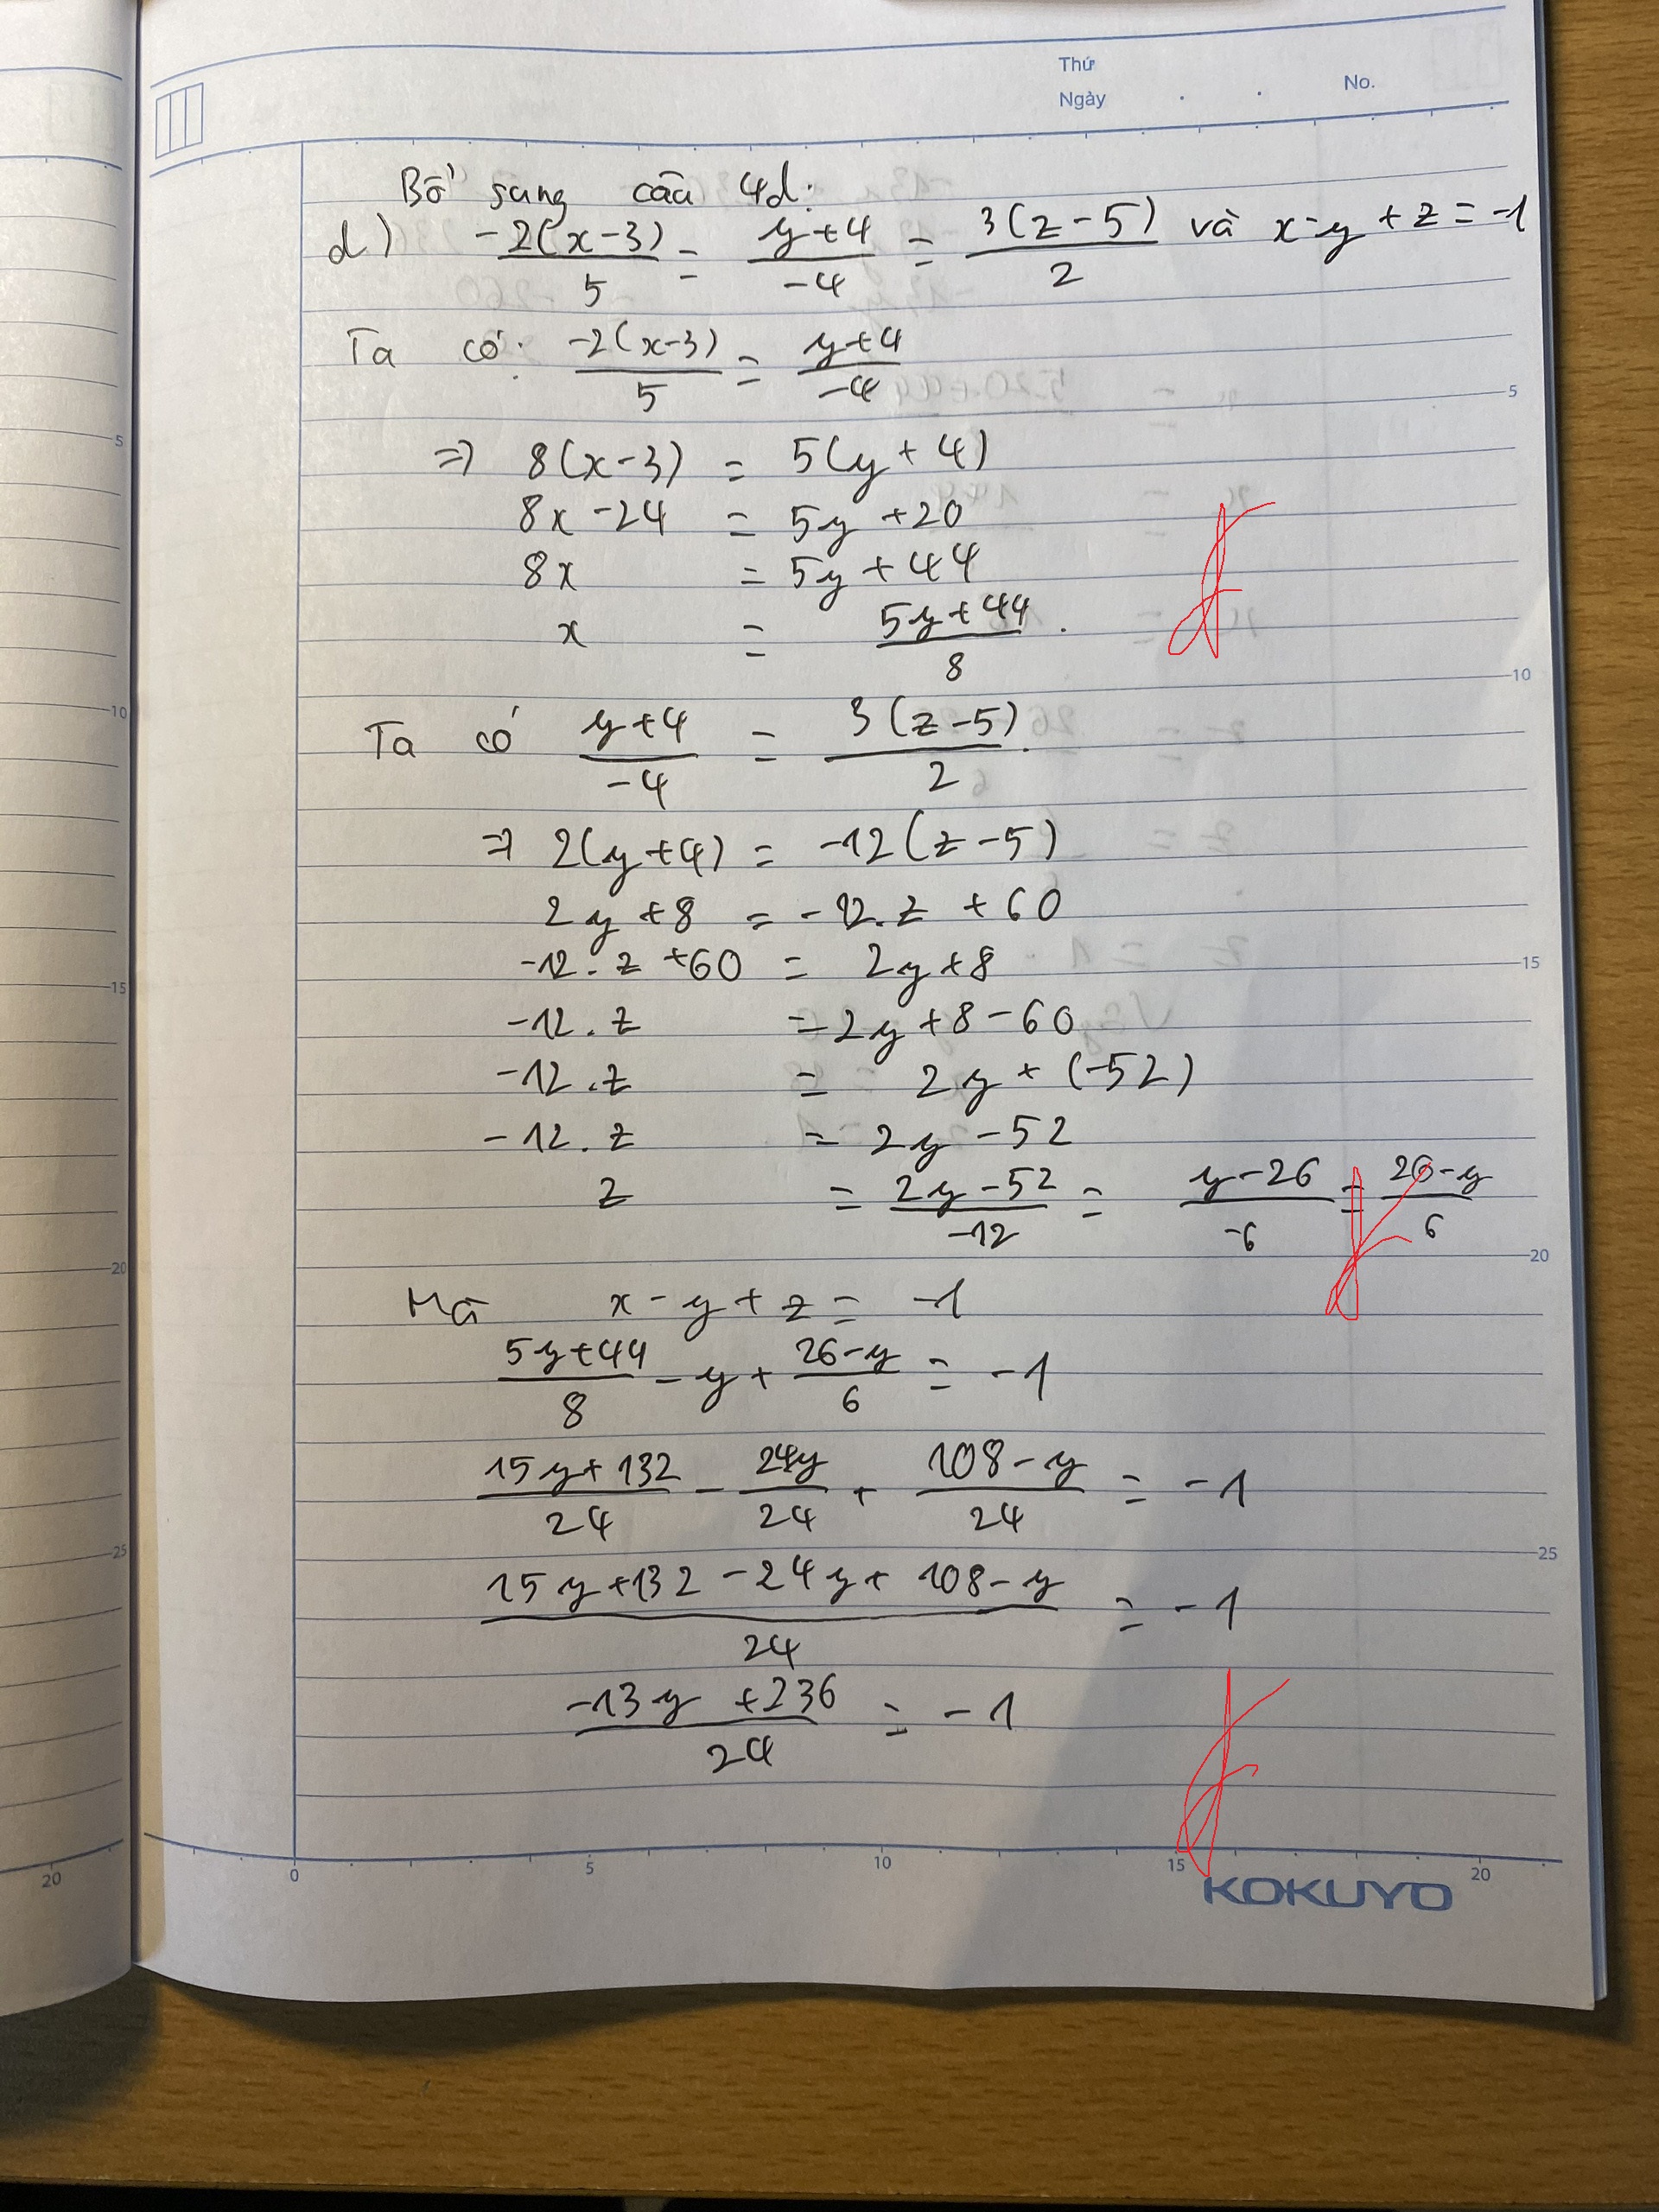 Thứ
Ngày . . No.
Bổ sung câu 4d:
d) -2(x-3)/5 = y+4/-4 = 3(z-5)/2 và x-y+z=-1
Ta có: -2(x-3)/5 = y+4/-4
=> 8(x-3) = 5(y+4)
8x-24 = 5y+20
8x = 5y+44
x = 5y+44/8 .
Ta có y+4/-4 = 3(z-5)/2 .
=> 2(y+4) = -12(z-5)
2y+8 = -12.z +60
-12.z +60 = 2y+8
-12.z = 2y+8-60
-12.z = 2y+(-52)
-12.z = 2y-52
z = 2y-52/-12 = y-26/-6 = 26-y/6
Mà x-y+z = -1
5y+44/8 - y + 26-y/6 = -1
15y+132/24 - 24y/24 + 108-y/24 = -1
15y+132-24y+108-y/24 = -1
-13y+236/24 = -1
0 5 10 15 20
KOKUYO
5
10
15
20
25
5
10
15
20
25
20